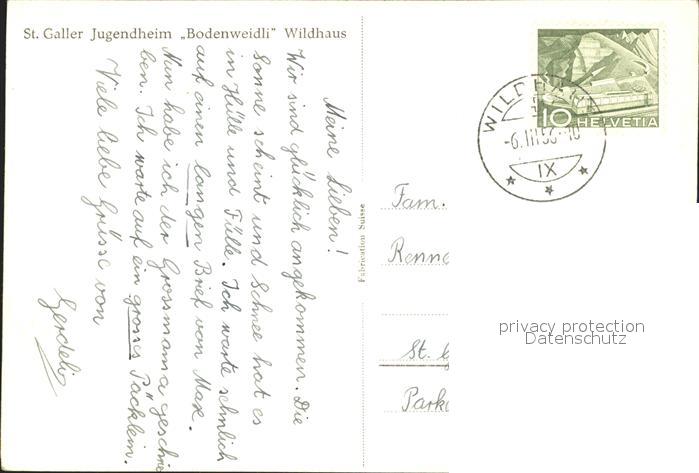 St. Galler Jugendheim „Bodenweidli" Wildhaus
Meine Lieben!
Wir sind glücklich angekommen. Die
Sonne scheint und Schnee hat es
in Hülle und Fülle. Ich warte sehnlich
auf einen langen Brief von Max.
Nun habe ich der Grossmama geschrie
ben. Ich warte auf ein grosses Päcklein.
Viele liebe Grüsse von
Gerdeli
Fabrication Suisse
WILDHAUS
-6.III.53-10
IX
10 HELVETIA
Fam.
Renne
St. G
Park
privacy protection
Datenschutz